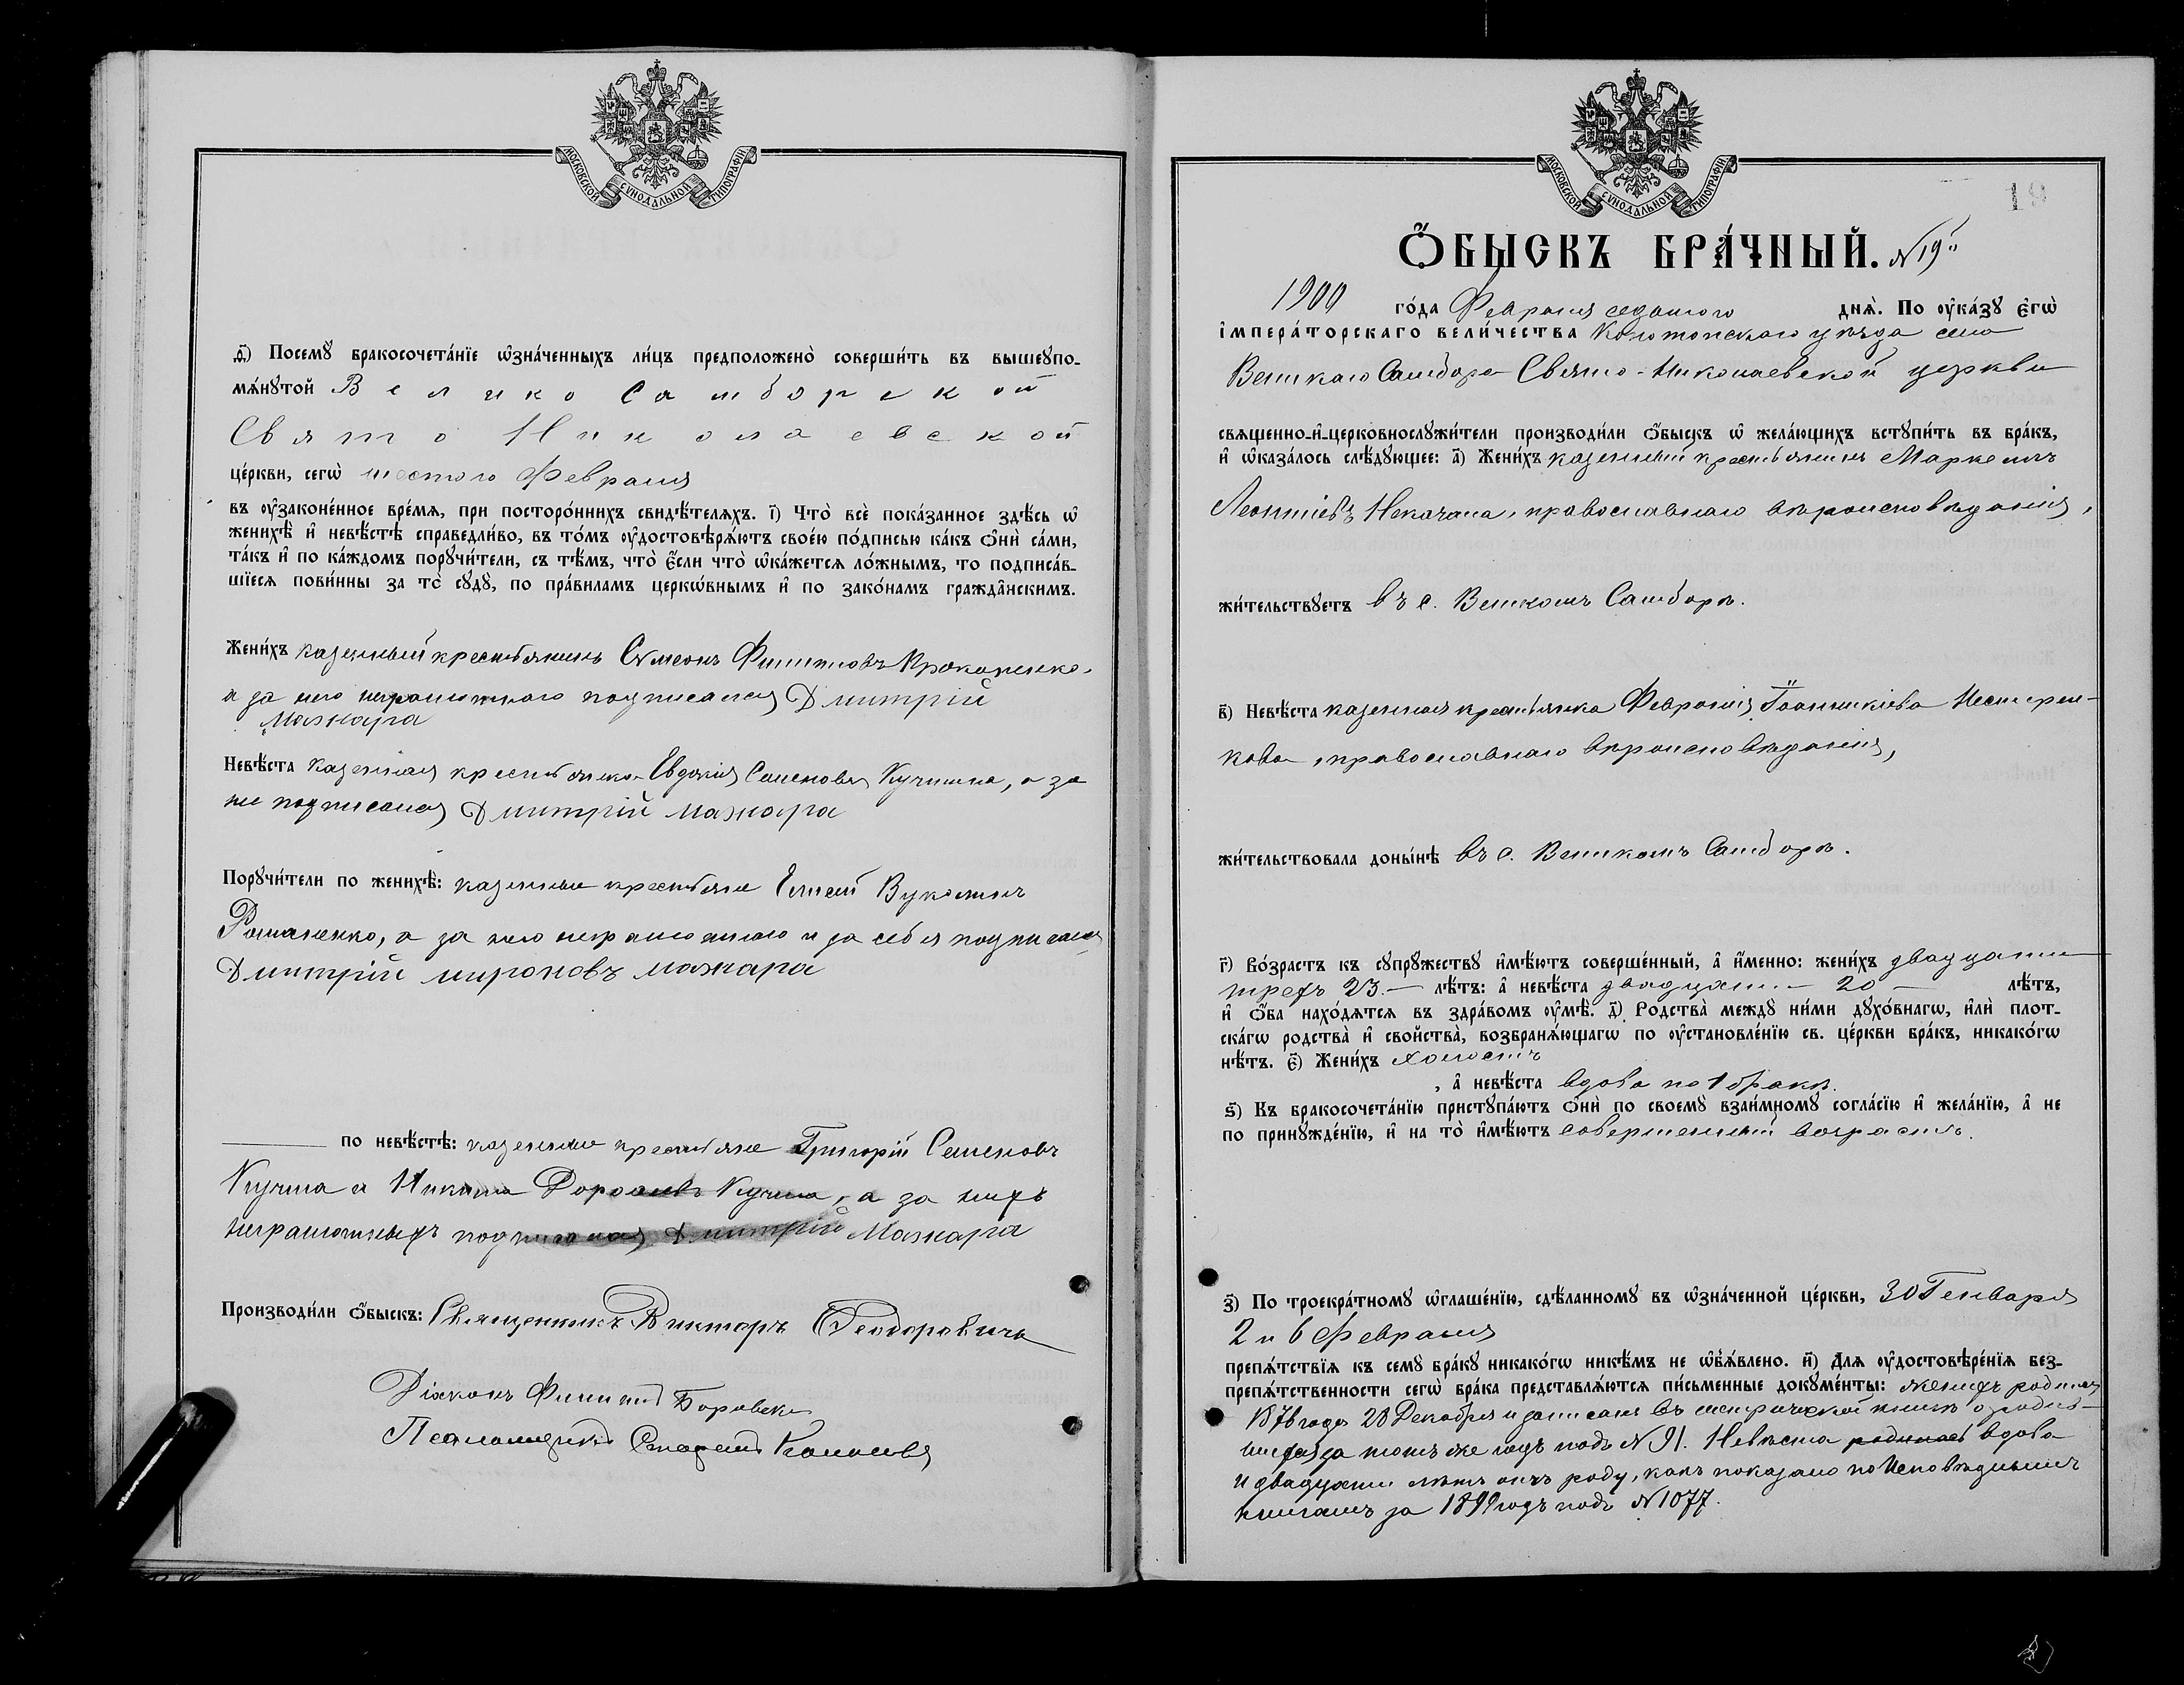 МОСКОВСКОЙ СѴНОДАЛЬНОЙ ТИПОГРАФІИ
ѳ҃) Посемꙋ̀ бракосочета́нїе ѡ҆зна́ченныхъ ли́цъ предположено̀ соверши́ть въ вышеꙋпо-
мѧ́нꙋтой Велико Самборской
Свято Николаевской
це́ркви, сегѡ̀ шестого Февраля
въ ᲂу҆законе́нное вре́мѧ, при посторо́ннихъ свидѣ́телѧхъ. і҃) Что̀ всѐ пока́занное здѣ́сь ѡ҆
женихѣ̀ и҆ невѣ́стѣ справедли́во, въ то́мъ ᲂу҆достовѣрѧ́ютъ свое́ю по́дписью ка́къ ѻ҆нѝ са́ми,
та́къ и҆ по ка́ждомъ порꙋчи́тели, съ тѣ́мъ, что̀ є҆́сли что̀ ѡ҆ка́жетсѧ ло́жнымъ, то подписа́в-
шїесѧ пови́нны за то̀ сꙋдꙋ̀, по пра́виламъ церко́внымъ и҆ по зако́намъ гражда̑нскимъ.
Жени́хъ казенный крестьянинъ Сѵмеонъ Филипповъ Прокопенко,
а за него неграмотного подписался Дмитрій
Мажара
Невѣ́ста казенная крестьянка Евдокія Семенова Кучмина, а за
не подписался Дмитрій мажара
Порꙋчи́тели по женихѣ̀: казенные крестьяне Елисей Вуколинъ
Романенко, а за него неграмотного и за себя подписался
Дмитрій мироновъ мажара
по невѣ́стѣ: казенные крестьяне Григорій Семеновъ
Кучма и Никита Кучма, а за нихъ
неграмотныхъ подписался Дмитрій Мажара
Производи́ли ѻ҆́быскъ: Священникъ Викторъ Ѳеодоровичъ
Діаконъ Филиппъ Боровскі
Псаломщикъ
МОСКОВСКОЙ СѴНОДАЛЬНОЙ ТИПОГРАФІИ
19
Ѻ҆́БЫСКЪ БРА́ЧНЫЙ. N 19й
1900 го́да Февраля седьмого днѧ̀. По ᲂу҆ка́зꙋ є҆гѡ̀
і҆мпера́торскаго вели́чества Конотопскаго уѣзда села
Великаго Самбора Свято-Николаевской церкви
свѧщенно-и҆-церковнослꙋжи́тели производи́ли ѻ҆́быскъ ѡ҆ жела́ющихъ встꙋпи́ть въ бра́къ,
и҆ ѡ҆каза́лось слѣ́дꙋющее: а҃) Жени́хъ казенный крестьянинъ Маркеллъ
Леонтіевъ Некачала, православнаго вѣроисповѣданія,
жи́тельствꙋетъ въ с. Великомъ Самборѣ.
в҃) Невѣ́ста казенная крестьянка Февронія Іоанникіева Нестерен-
кова, православнаго вѣроисповѣданія,
жи́тельствовала доны́нѣ въ с. Великомъ Самборѣ.
г҃) Во́зрастъ къ сꙋпрꙋ́жествꙋ и҆мѣ́ютъ соверше́нный, а҆ и҆́менно: жени́хъ двадцати
трехъ 23.— лѣ́тъ: а҆ невѣ́ста двадцати — 20 — лѣ́тъ,
и҆ ѻ҆́ба нахо́дѧтсѧ въ здра́вомъ ᲂу҆мѣ̀. д҃) Родства̀ междꙋ̀ ни́ми дꙋхо́внагѡ, и҆лѝ плот-
ска́гѡ родства̀ и҆ свойства̀, возбранѧ́ющагѡ по ᲂу҆становле́нїю св. це́ркви бра́къ, никако́гѡ
нѣ́тъ. є҃) Жени́хъ холостъ
, а҆ невѣ́ста вдова по 1 бракѣ.
ѕ҃) Къ бракосочета́нїю пристꙋпа́ютъ ѻ҆нѝ по своемꙋ̀ взаи́мномꙋ согла́сїю и҆ жела́нїю, а҆ не
по принꙋжде́нїю, и҆ на то̀ и҆мѣ́ютъ совершенный возрастъ.
з҃) По троекра́тномꙋ ѡ҆глаше́нїю, сдѣ́ланномꙋ въ ѡ҆зна́ченной це́ркви, 30 Генваря
2 и 6 Февраля
препѧ́тствїѧ къ семꙋ̀ бра́кꙋ никако́гѡ никѣ́мъ не ѡ҆б̾ѧ́влено. и҃) Длѧ ᲂу҆достовѣре́нїѧ без-
препѧ́тственности сегѡ̀ бра́ка представлѧ́ютсѧ пи́сьменные докꙋме́нты: женихъ родился
1876 года 28 Декабря и записанъ въ метрической книгѣ о родив-
шихся за тотъ же годъ подъ N 91. Невѣста родилась вдова
и двадцати лѣтъ отъ роду, какъ показано по Исповѣднымъ
книгамъ за 1899 годъ подъ N 1077.